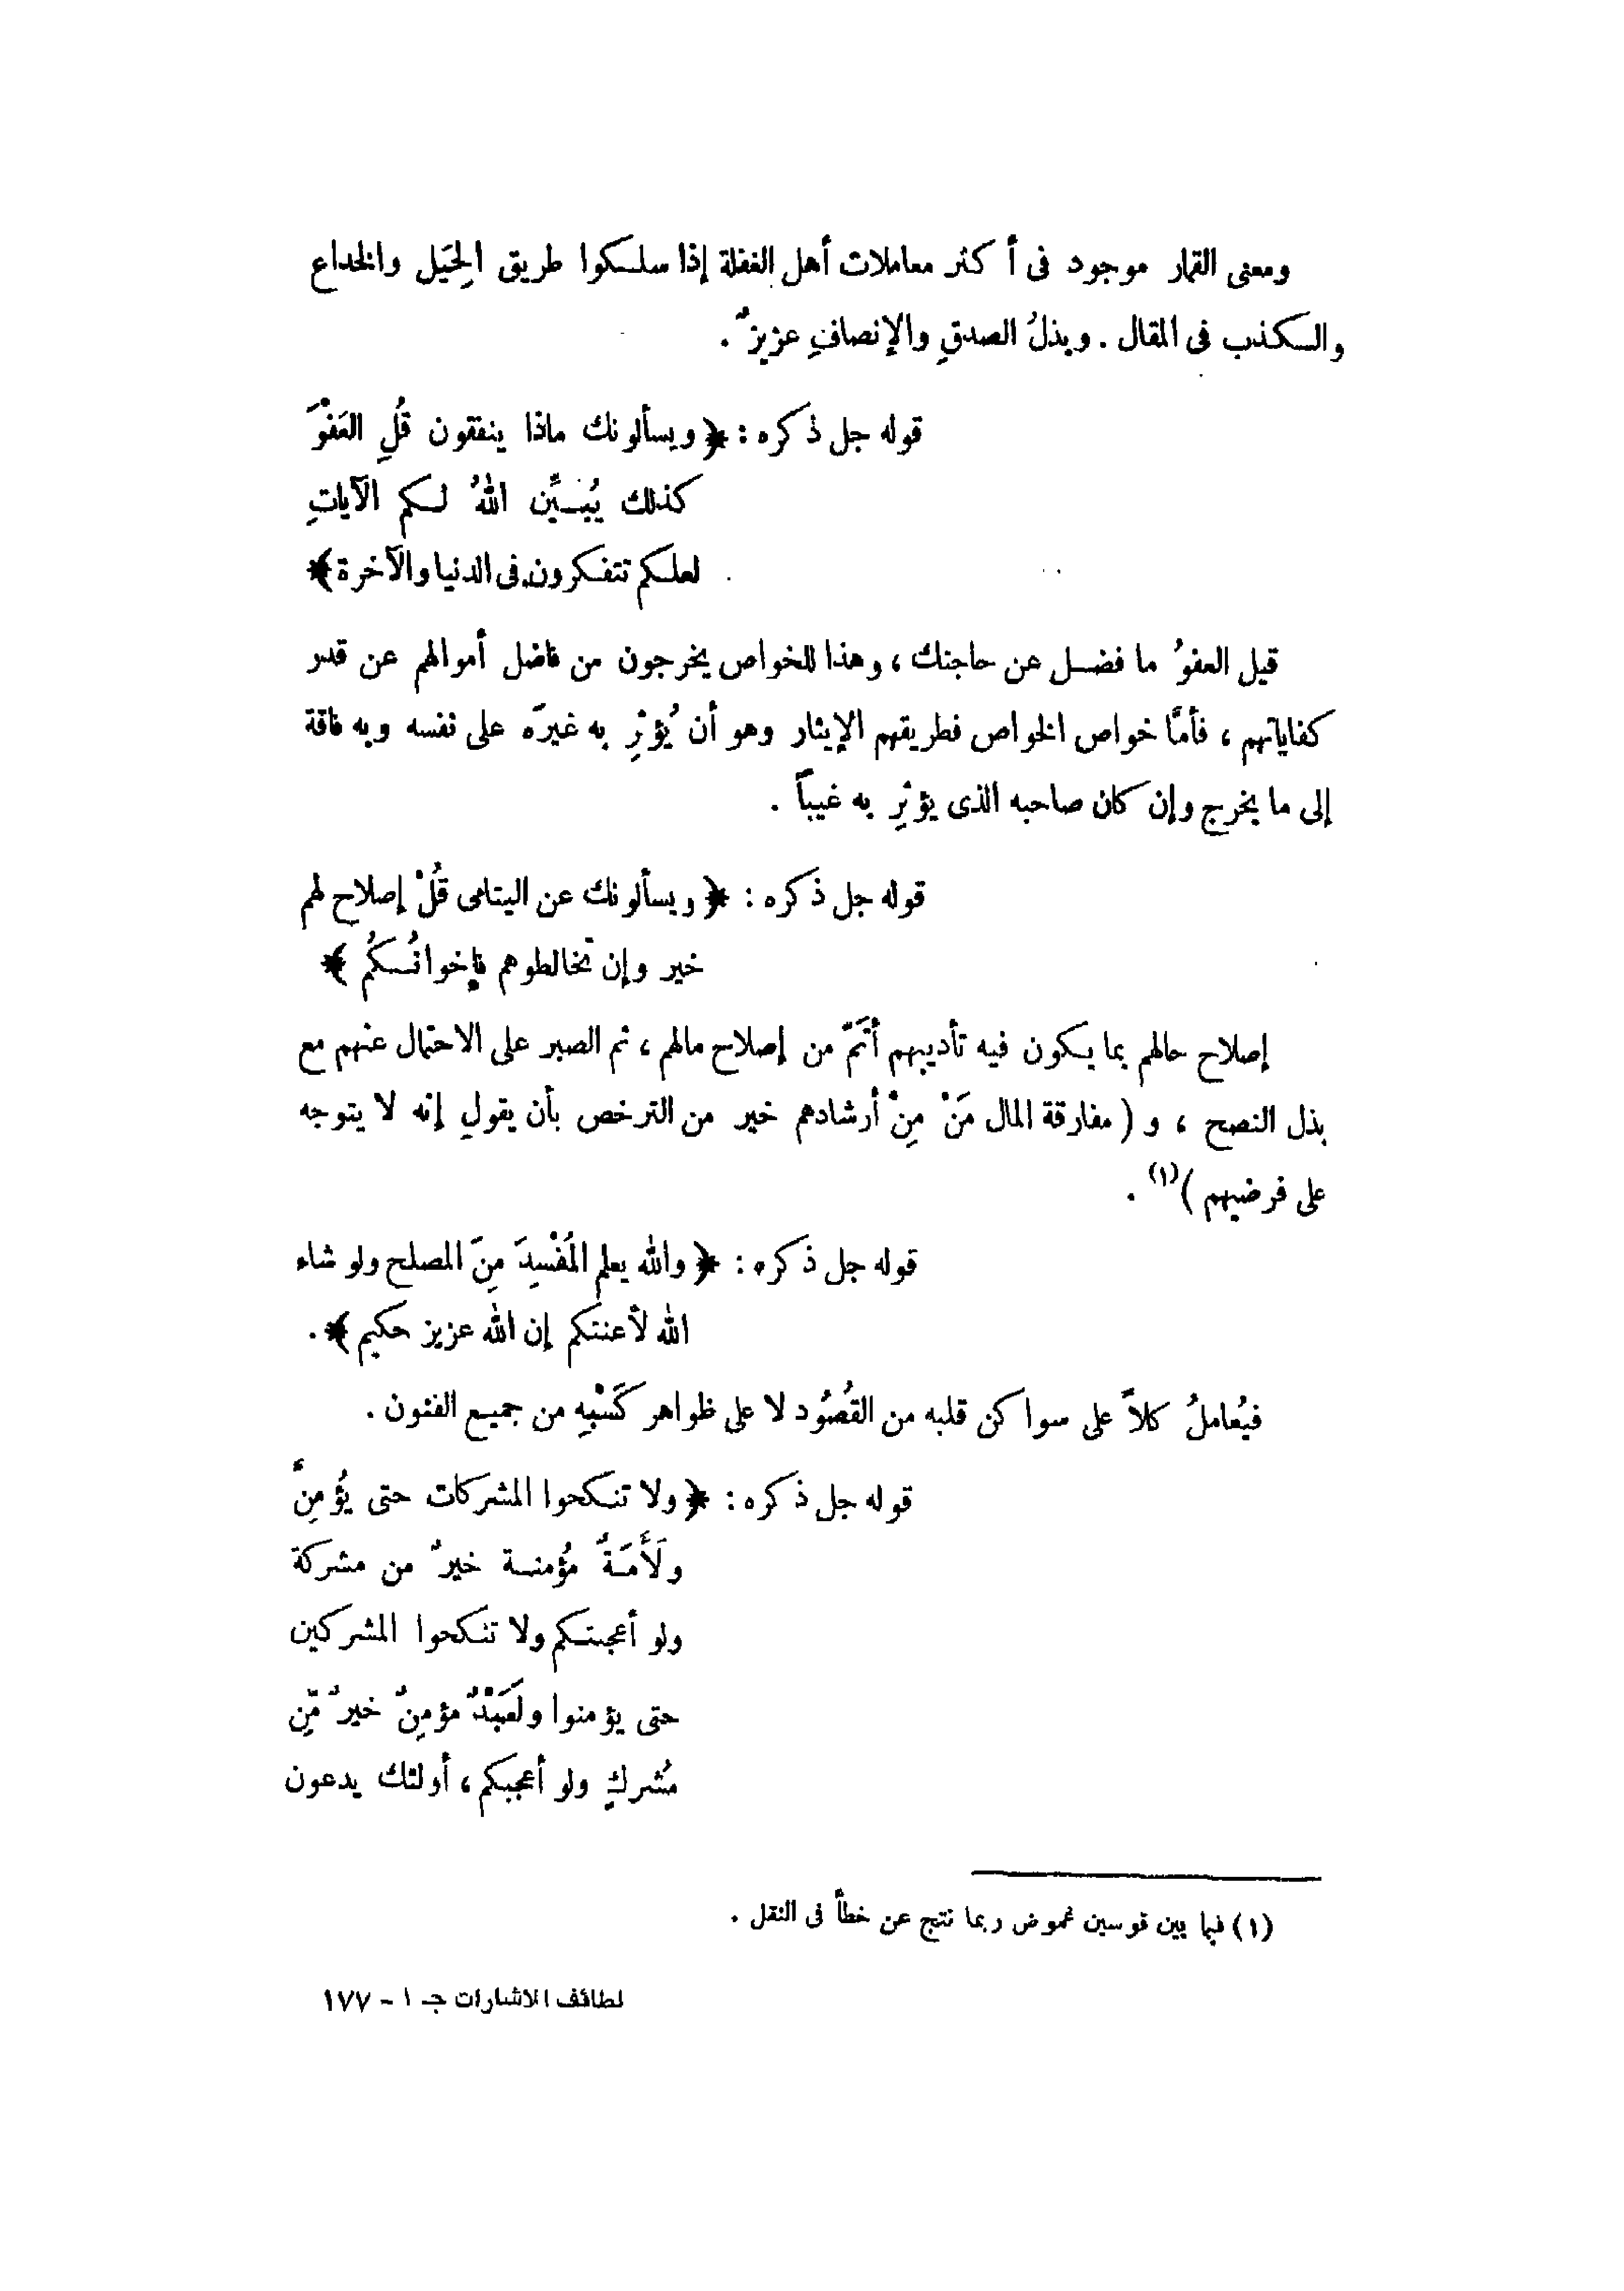 ومعنى القمار موجود فى أكثر معاملات أهل الغفلة إذا سلكوا طريق الحِيَل والخداع
والكذب فى المقال . وبذلُ الصدقِ والإنصافِ عزيزٌ .
قوله جل ذكره : ﴿ ويسألونك ماذا ينفقون قُلِ العَفْوَ
كذلك يُبَيِّن اللهُ لكم الآياتِ
لعلكم تتفكرون فى الدنيا والآخرة ﴾
قيل العفوُ ما فضل عن حاجتك ، وهذا للخواص يخرجون من فاضل أموالهم عن قدر
كفاياتهم ، فأمَّا خواص الخواص فطريقهم الإيثار وهو أن يُؤثِر به غيرَه على نفسه وبه فاقة
إلى ما يخرج وإن كان صاحبه الذى يؤثِر به غيباً .
قوله جل ذكره : ﴿ ويسألونك عن اليتامى قُلْ إصلاح لهم
خير وإن تخالطوهم فإخوانُكُم ﴾
إصلاح حالهم بما يكون فيه تأديبهم أتَمّ من إصلاح مالهم ، ثم الصبر على الاحتمال عنهم مع
بذل النصح ، و ( مفارقة المال مَنْ مِنْ أرشادهم خير من الترخص بأن يقول إنه لا يتوجه
على فرضيهم )(١) .
قوله جل ذكره : ﴿ والله يعلم المُفْسِدَ مِنَ المصلح ولو شاء
الله لأعنتكم إن الله عزيز حكيم ﴾ .
فيُعاملُ كلاً على سواكن قلبه من القُصُود لا على ظواهر كَسْبِهِ من جميع الفنون .
قوله جل ذكره : ﴿ ولا تنكحوا المشركات حتى يُؤمِنَّ
ولَأَمَةٌ مُؤمنة خيرٌ من مشركة
ولو أعجبتكم ولا تنكحوا المشركين
حتى يؤمنوا ولَعَبْدٌ مؤمِنٌ خيرٌ مِّن
مُشركٍ ولو أعجبكم ، أولئك يدعون
(١) فيما بين قوسين غموض ربما نتج عن خطأ فى النقل .
لطائف الاشارات جـ ١ - ١٧٧